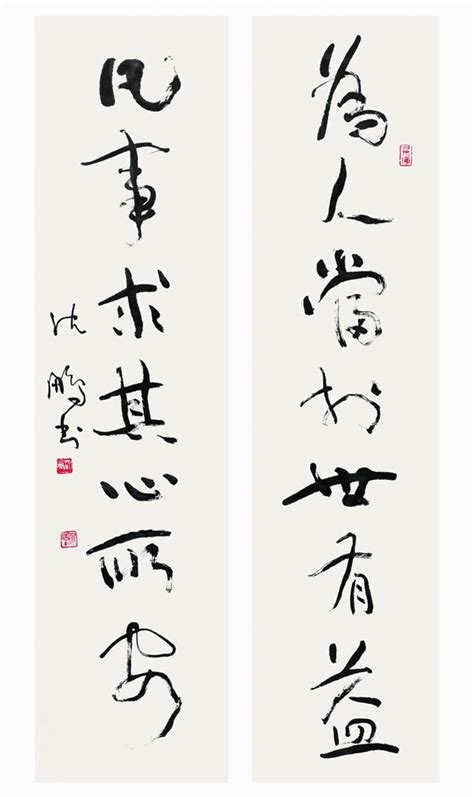 為人當於世有益
凡事求其心所安
沈鵬書